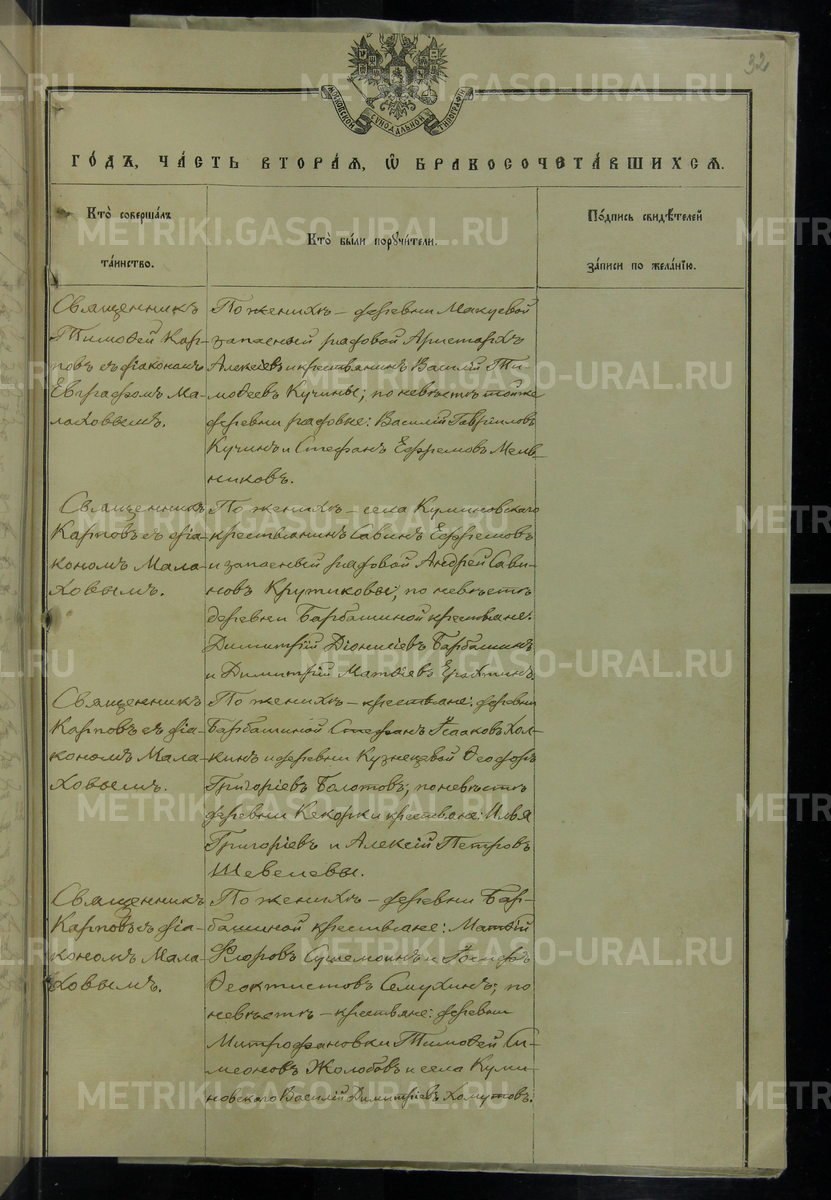 32
МОСКОВСКОЙ СѴНОДАЛЬНОЙ ТИПОГРАФІИ
ГО́ДЪ, ЧА́СТЬ ВТОРА́Ѧ, Ѡ҆ БРАКОСОЧЕТА́ВШИХСѦ.
Кто̀ соверша́лъ
та́инство.
Кто̀ бы́ли порꙋчи́тели.
По́дпись свидѣ́телей
за́писи по жела́нїю.
Священникъ
Тимоѳей Кар-
повъ съ діакономъ
Евграфомъ Ма-
лаховымъ.
По женихѣ – деревни Макуевой
запасный рядовой Аристархъ
Алексіевъ и крестьянинъ Василій Ти-
моѳеевъ Кучины; по невѣстѣ тойже
деревни рядовые: Василій Гавріиловъ
Кучинъ и Стефанъ Ефремовъ Мель-
никовъ.
Священникъ
Карповъ съ діа-
кономъ Мала-
ховымъ.
По женихѣ – села Куминовскаго
крестьянинъ Савинъ Ефремовъ
и запасный рядовой Андрей Сави-
новъ Крутиковы; по невѣстѣ
деревни Барбашиной крестьяне:
Димитрій Діонисіевъ Барбашинъ
и Димитрій Матвіевъ
Священникъ
Карповъ съ діа-
кономъ Мала-
ховымъ.
По женихѣ – крестьяне: деревни
Барбашиной Стефанъ Исааковъ Хол-
кинъ и деревни Кузнецовой Ѳеодоръ
Григоріевъ Болотовъ; по невѣстѣ
деревни Кекорки крестьяне: Илья
Григоріевъ и Алексій Петровъ
Шевелевы.
Священникъ
Карповъ съ діа-
кономъ Мала-
ховымъ.
По женихѣ – деревни Бар-
башиной крестьяне: Матвій
Флоровъ и Іосифъ
Ѳеоктистовъ Семухинъ; по
невѣстѣ – крестьяне: деревни
Митрофановки Тимоѳей Си-
меоновъ Жолобовъ и села Куми-
новскаго Василій Димитріевъ Хомутовъ.
METRIKI.GASO-URAL.RU